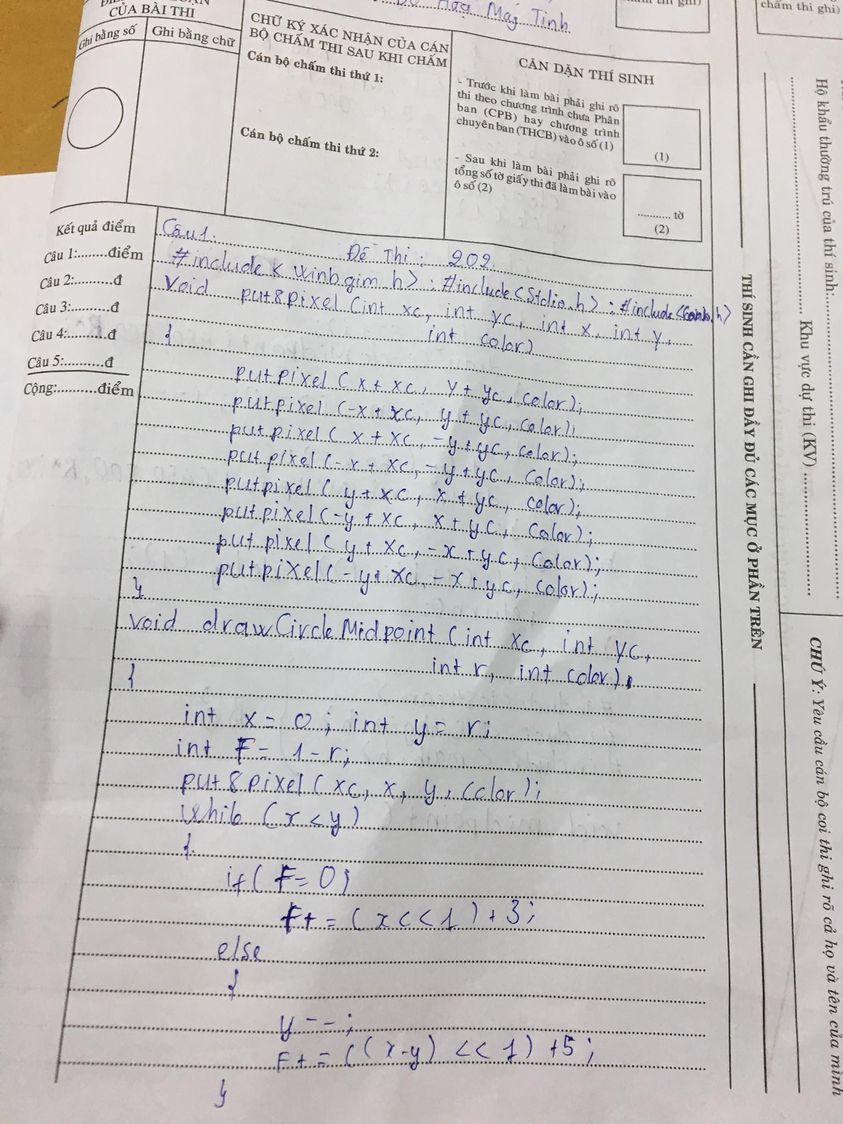 CỦA BÀI THI
Ghi bằng số
Ghi bằng chữ
CHỮ KÝ XÁC NHẬN CỦA CÁN
BỘ CHẤM THI SAU KHI CHẤM
Cán bộ chấm thi thứ 1:
Cán bộ chấm thi thứ 2:
Máy Tính
CĂN DẶN THÍ SINH
- Trước khi làm bài phải ghi rõ
thi theo chương trình chưa Phân
ban (CPB) hay chương trình
chuyên ban (THCB) vào ô số (1)
- Sau khi làm bài phải ghi rõ
tổng số tờ giấy thi đã làm bài vào
ô số (2)
(1)
........... tờ
(2)
chấm thi ghi)
Kết quả điểm
Câu 1:.......điểm
Câu 2:.........đ
Câu 3:.........đ
Câu 4:.........đ
Câu 5:.........đ
Cộng:..........điểm
Câu 1.
Đề Thi: 202
#include < winbgim.h> : #include <Stdio.h> : #include <conio.h>
Void put8pixel (int xc, int yc, int x, int y,
int color)
{
putpixel (x + xc, y + yc, color);
putpixel (-x + xc, y + yc, color);
putpixel (x + xc, -y + yc, color);
putpixel (-x + xc, -y + yc, color);
putpixel (y + xc, x + yc, color);
putpixel (-y + xc, x + yc, color);
putpixel (y + xc, -x + yc, color);
putpixel (-y + xc, -x + yc, color);
}
void drawCircleMidpoint (int xc, int yc,
int r, int color)
{
int x = 0; int y = r;
int F = 1 - r;
put8pixel (xc, x, y, color);
while (x < y)
{
if (F = 0)
F + = (x << 1) + 3;
else
{
y - -;
F + = ((x-y) << 1) + 5;
}
Hộ khẩu thường trú của thí sinh:
Khu vực dự thi (KV)
THÍ SINH CẦN GHI ĐẦY ĐỦ CÁC MỤC Ở PHẦN TRÊN
CHÚ Ý: Yêu cầu cán bộ coi thi ghi rõ cả họ và tên của mình